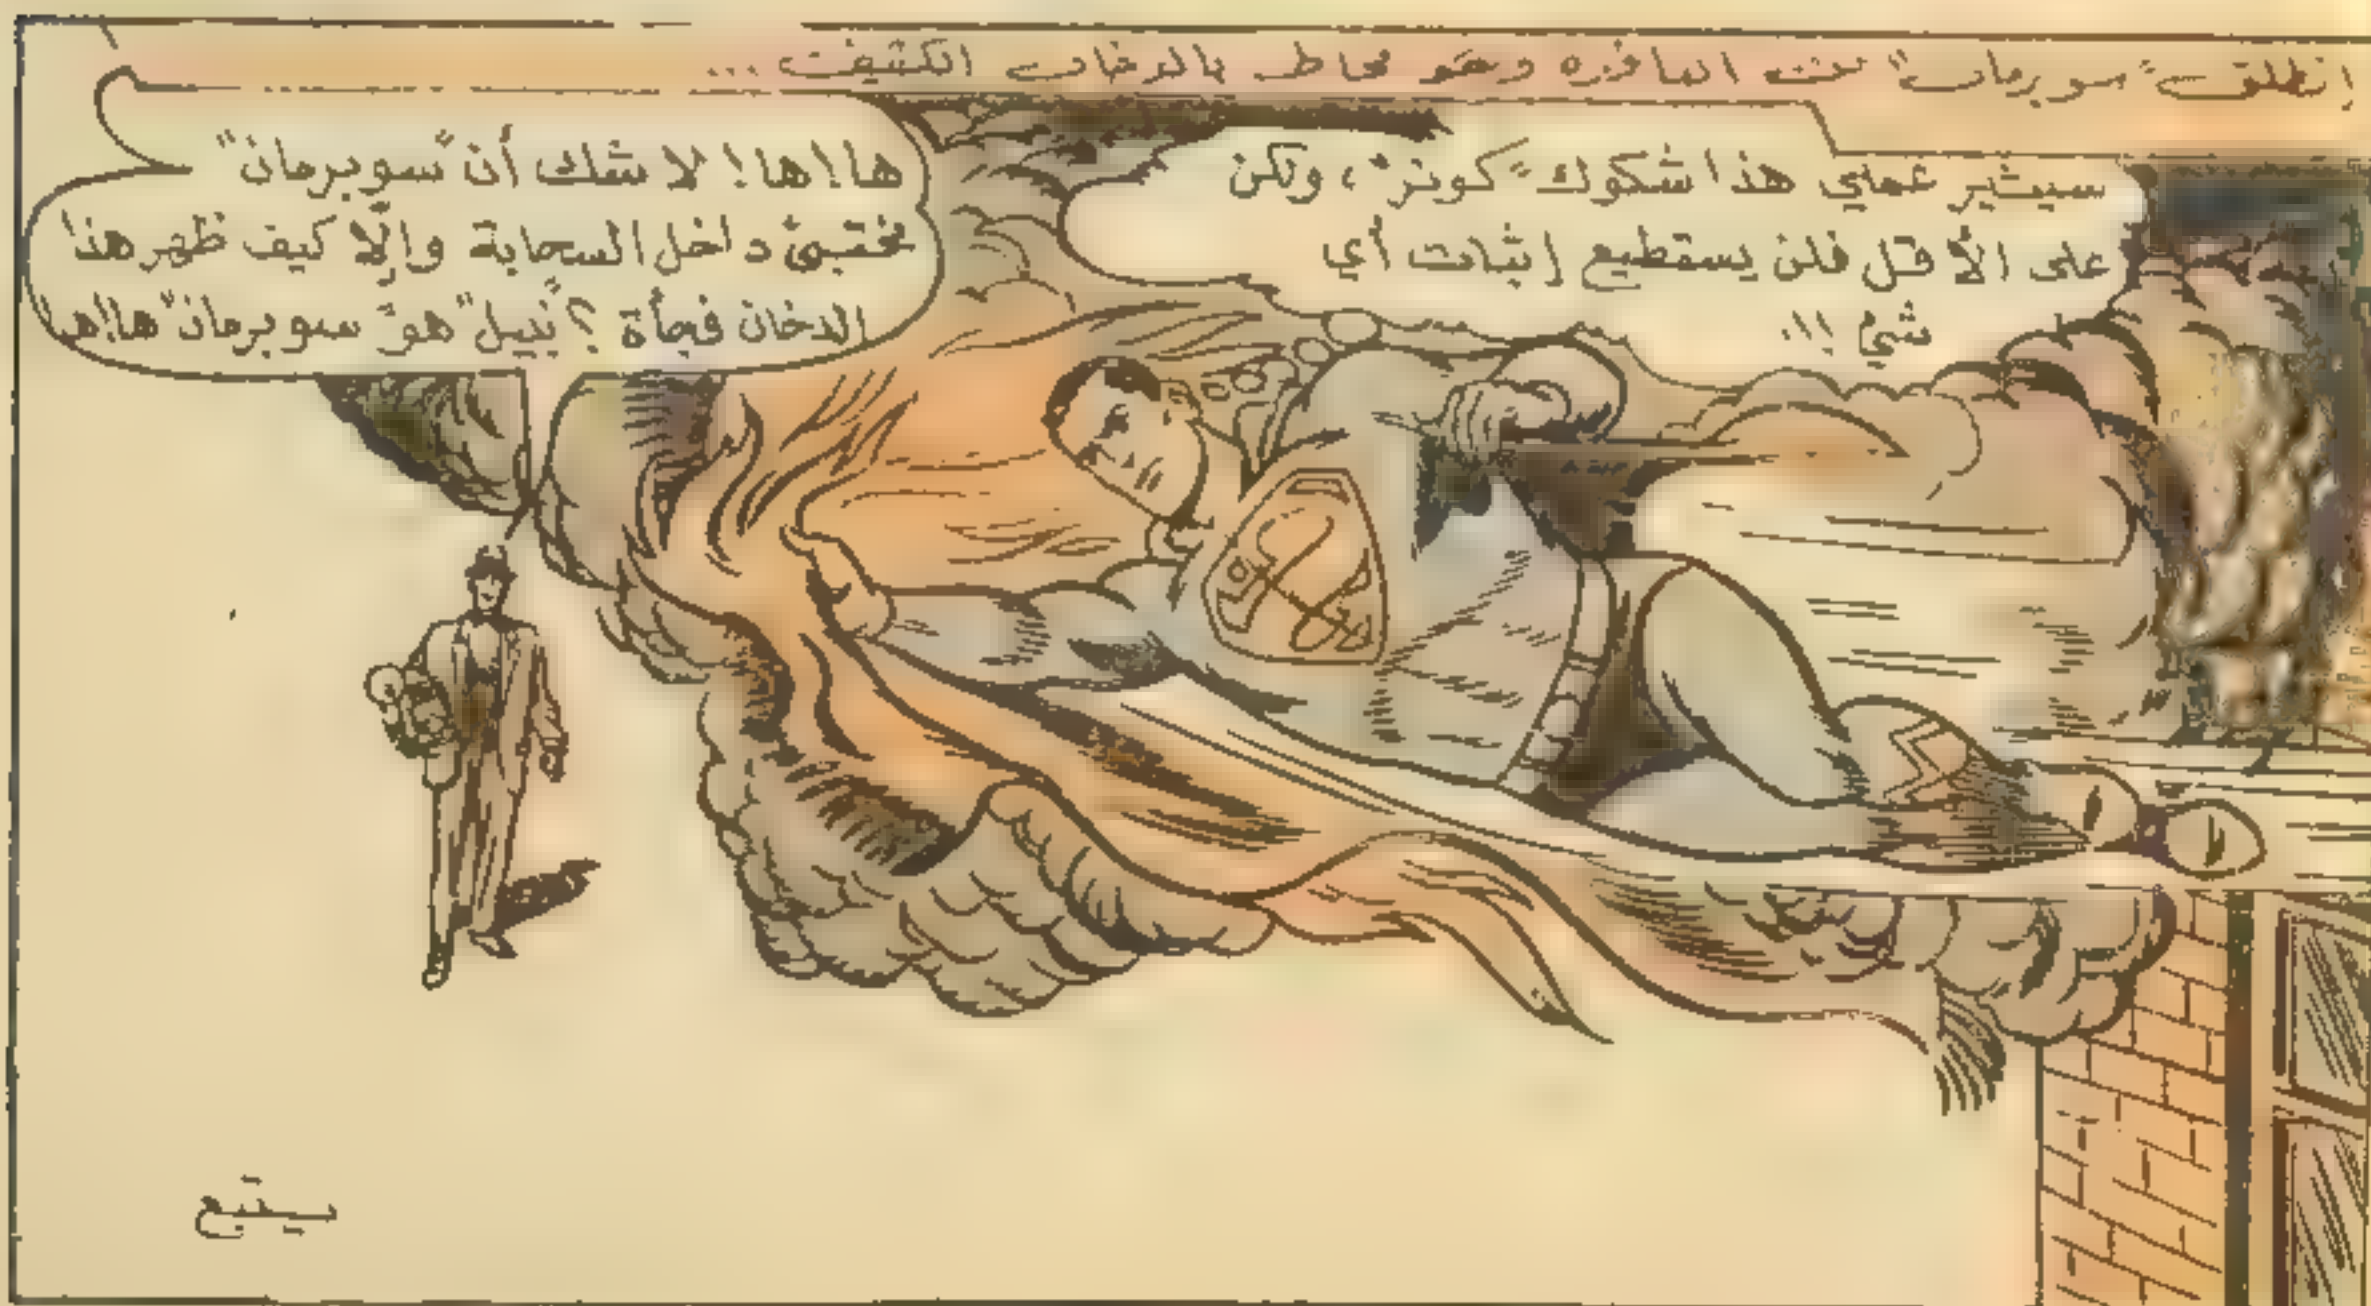 إنطلق "سوبرمان" من النافذة وهو محاط بالدخان الكثيف ...
سيثير عملي هذا شكوك "كونر"، ولكن
على الأقل فلن يستطيع إثبات أي
شيء !!.
ها! ها! لا شك أن "سوبرمان"
مختبئ داخل السحابة وإلّا كيف ظهر هذا
الدخان فجأة ؟ "نبيل" هو "سوبرمان" ها! ها
سيتبع